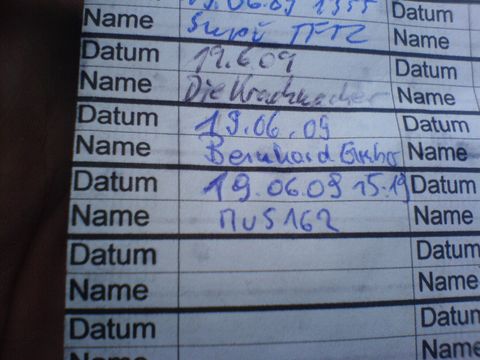 19.06.09 1355 Datum
Name Name
Datum 19.6.09 Datum
Name Die Krachmacher Name
Datum 19.06.09 Datum
Name Bernhard Name
Datum 19.06.09 15.19 Datum
Name MUS162 Name
Datum Datum
Name Name
Datum Datum
Name Name